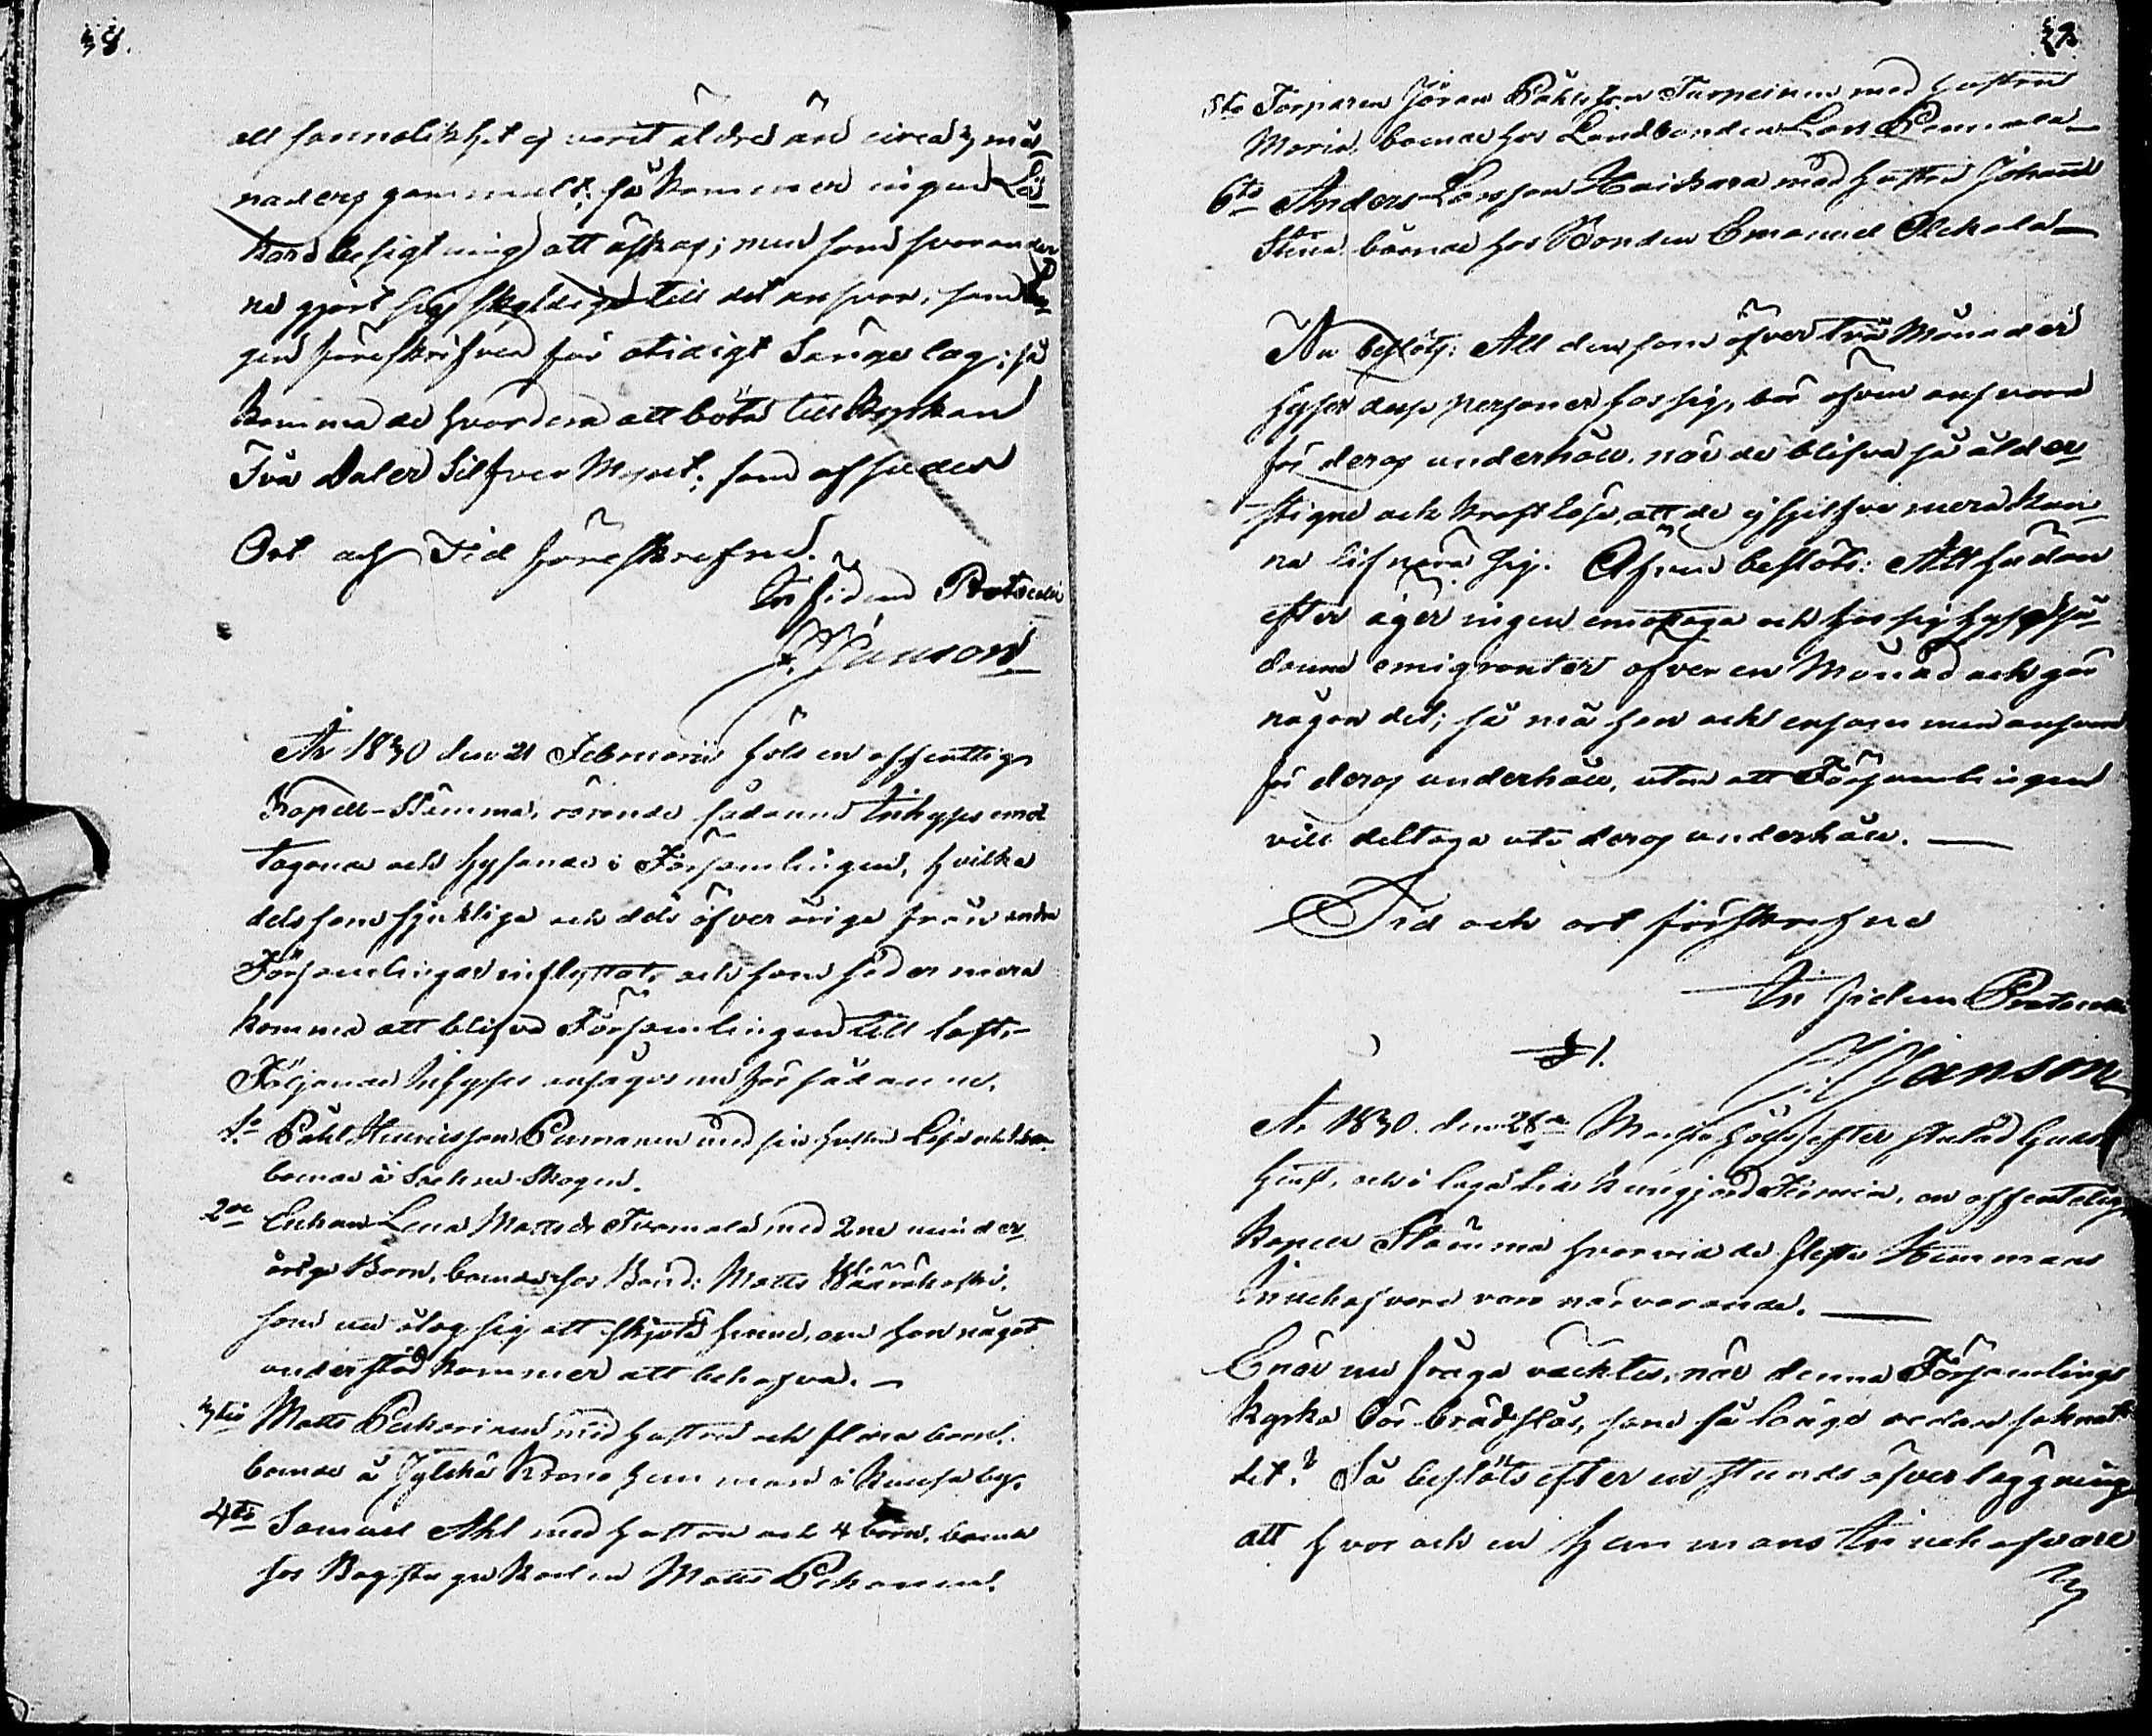 38.
all sannolikhet ej varit äldre än circa 3 må-
naders gammalt; så kommer ingen Lä-
kare besigtning att äskas; men som svarander-
ne gjort sig skyldige till det ansvar, som La-
gen föreskrifver för otidigt Sängelag; så
komma de hvardera att böta till Kyrkan
Två Daler Silfver Mynt; som afsades
Ort och Tid föreskrefne.
In fidem Protocolli
J. Janson
År 1830 den 21 Februarii höls en offentlig
Kapell-Stämma, rörande sådanne Inhyses emot
tagande och hysande i Församlingen, hvilka
dels som sjukliga och dels öfver åriga från andra
Församlingar inflyttat, och som sedermera
komma att blifva Församlingen till last.-
Följande Inhyses ansågos nu för sådanne.
1o Påhl Henricsson Permanen med sin hustru Lisa och barn
boende å Sochne Skogen.
2do Enkan Lena Mattsdr Tuomala med 2ne minder
åriga Barn, boende hos Bond: Matts
som nu åtog sig att sköta henne, om hon något
understöd kommer att behöfva. -
3tio Matts Peckarinen med hustru och flera barn,
boende å Jylchä Krono hemman i Kansa by.
4to Samuel Ahl med hustru och 4 barn, boende
hos Matts Pekarinen.
39.
5to Torparen Jöran Påhlsson Turpeinen med hustru
Maria, boende hos Landbonden Lars Pennala -
6to Anders Larsson Haikara med hustru Johanna
Stina boende hos Bonden Emanuel Ilckala -
Nu beslöts: All den som öfver två Månader
hyser desse personer hos sig, bör äfven ansvara
för deras underhåll, när de blifva så ålder
stigne och kraftlöse, att de ej sjelfve mera kun-
na lifnära sig. Äfven beslöts: Att sedan
efter äger ingen emottaga och hos sig hysa så-
danne emigranter öfver en Månad och gör
någon det; så må han ock ensam men ansvara
för deras underhåll, utan att Församlingen
vill deltaga uti deras underhåll. —
Tid och ort förskrefne
In fidem Protocolli
J. Janson
§ 1.
År 1830. den 28de Martii höls, efter slutad Guds
tjenst, och i laga tid kungjord Termin, en offentelig
Kapell Stämma hvarvid de fleste Hemmans
Innehafvare voro närvarande. —
Enär nu fråga väcktes, när denna Församlings
Kyrka bör brädslås, som så länge redan saknat
det? Så beslöts efter en stunds öfverläggning
att hvar och en hemmans Innehafvare